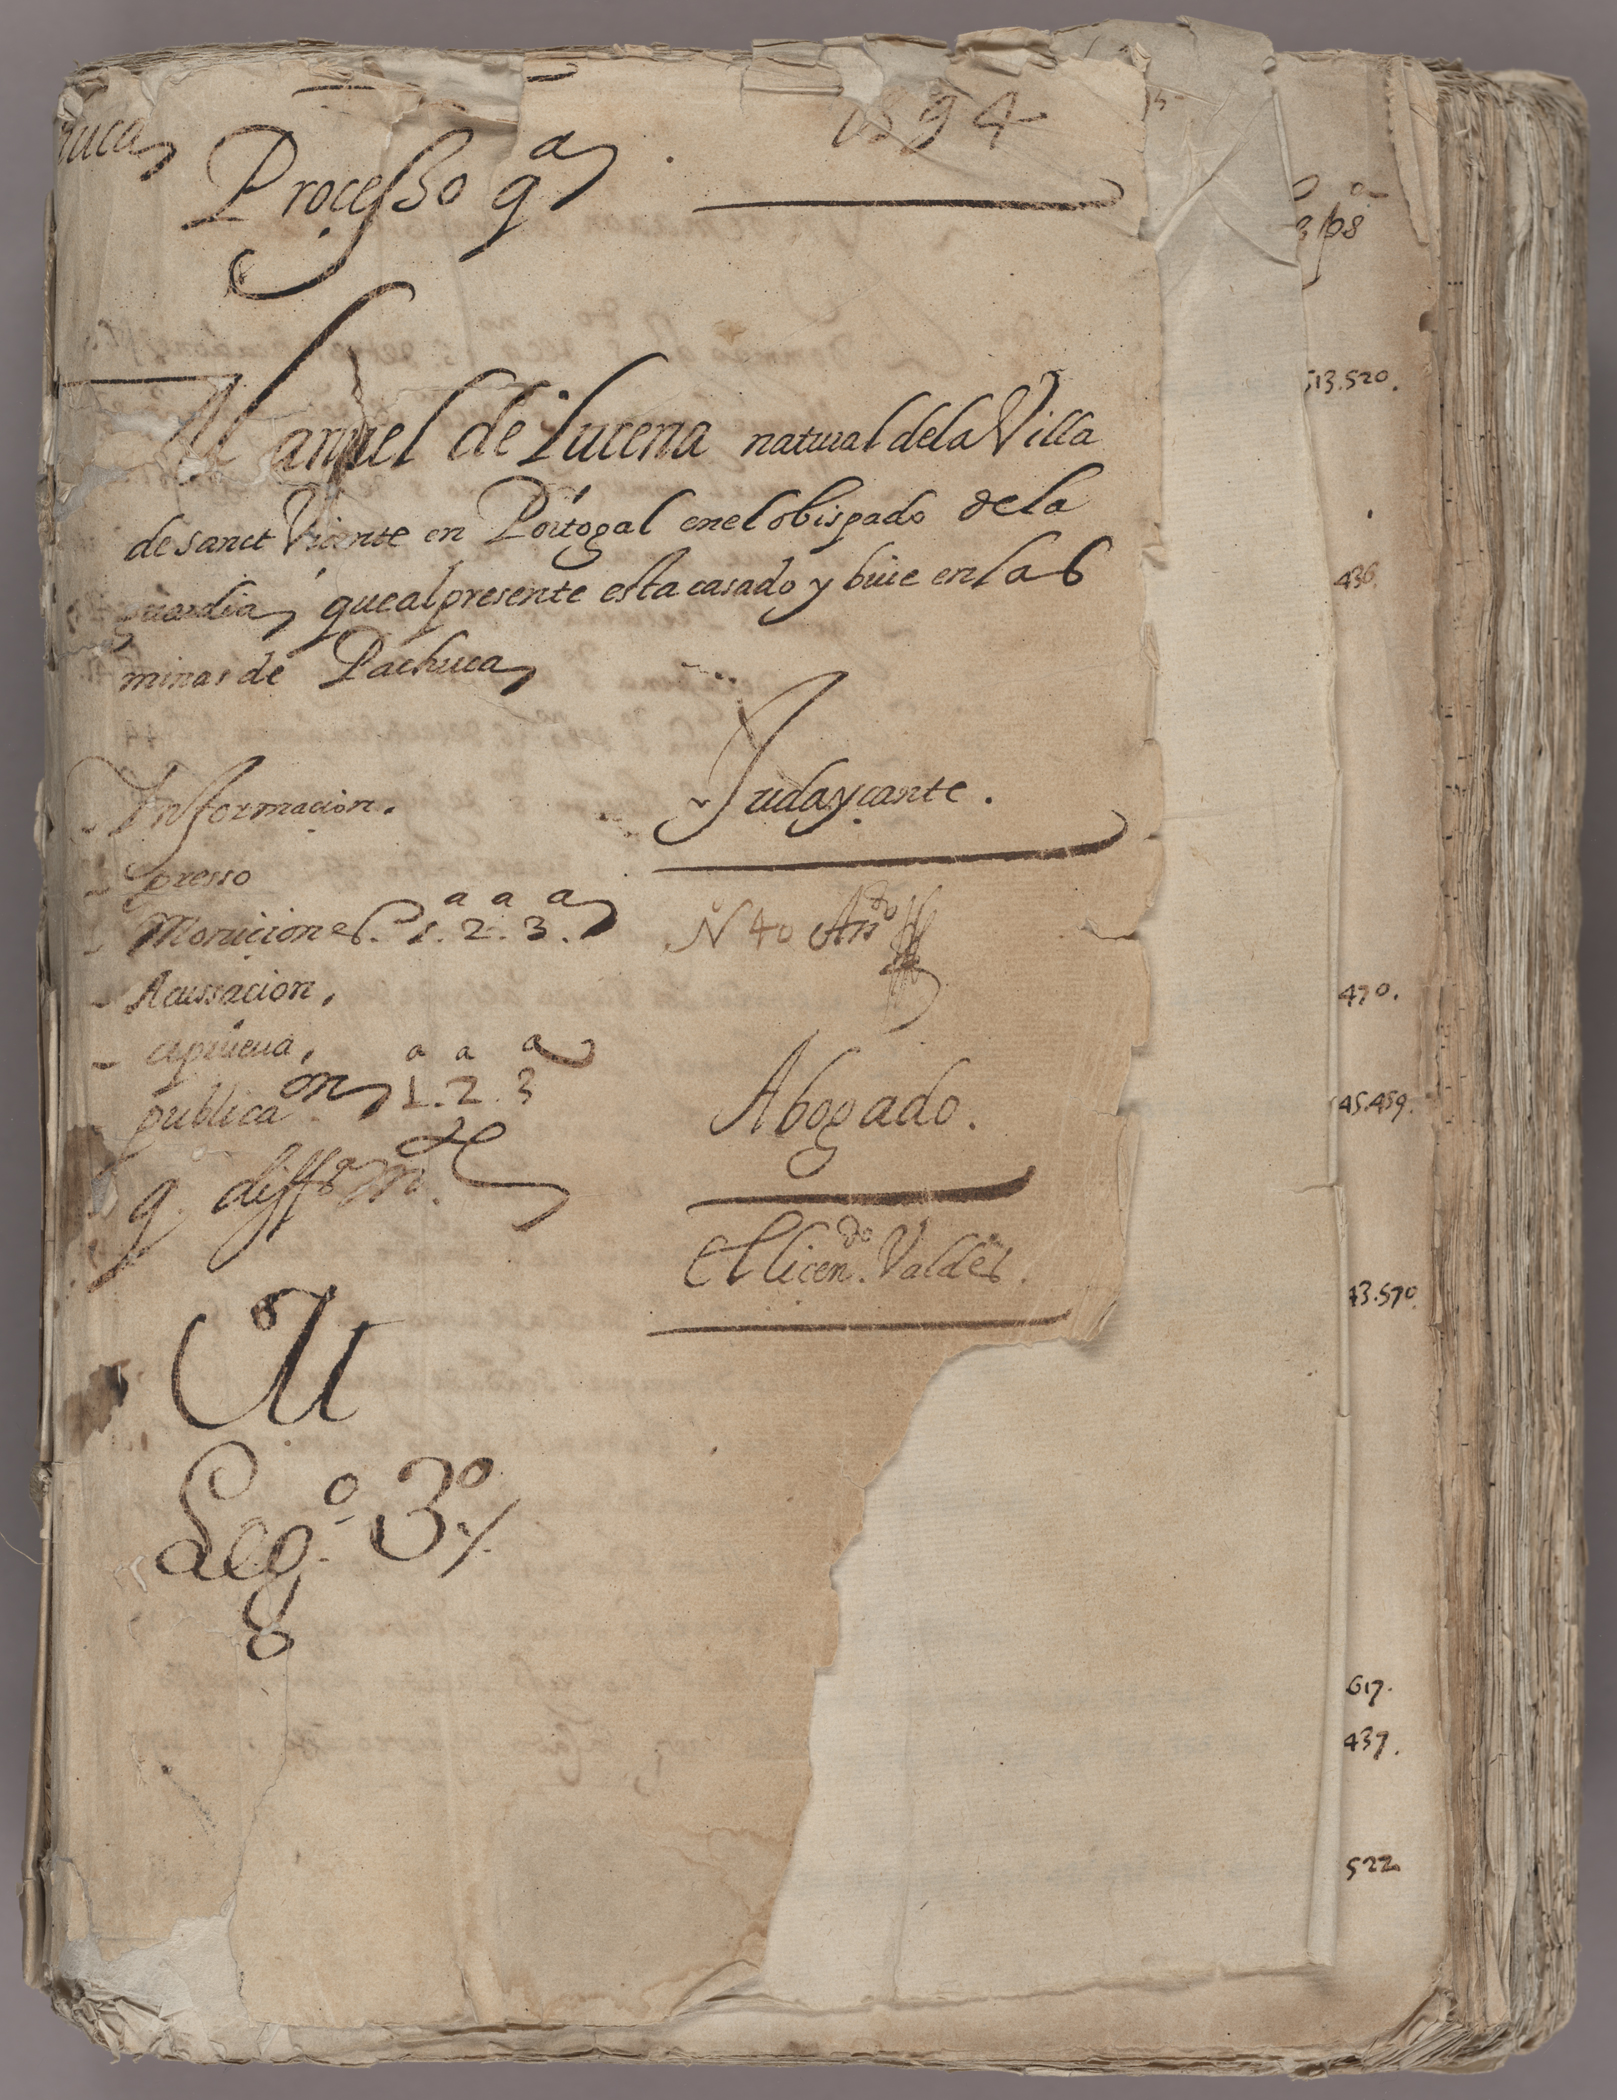 1594
Processo qᵃ
Manuel de Lucena natural dela Villa
de sanct Vicente en Portogal en el obispado de la
guardia, que al presente esta casado y biue en las
minas de Pachuca
Judayçante.
Informacion.
presso
Moniciones. 1.ᵃ 2.ᵃ 3.ᵃ
N° 40
Acussacion,
aprueua,
publicaᵒⁿ 1.ᵃ 2.ᵃ 3ᵃ
Abogado.
El licenᵈᵒ. Valdes.
M
Legᵒ. 3ᵒ
8
513.520.
436.
470.
45.459.
43.570.
617.
437.
522